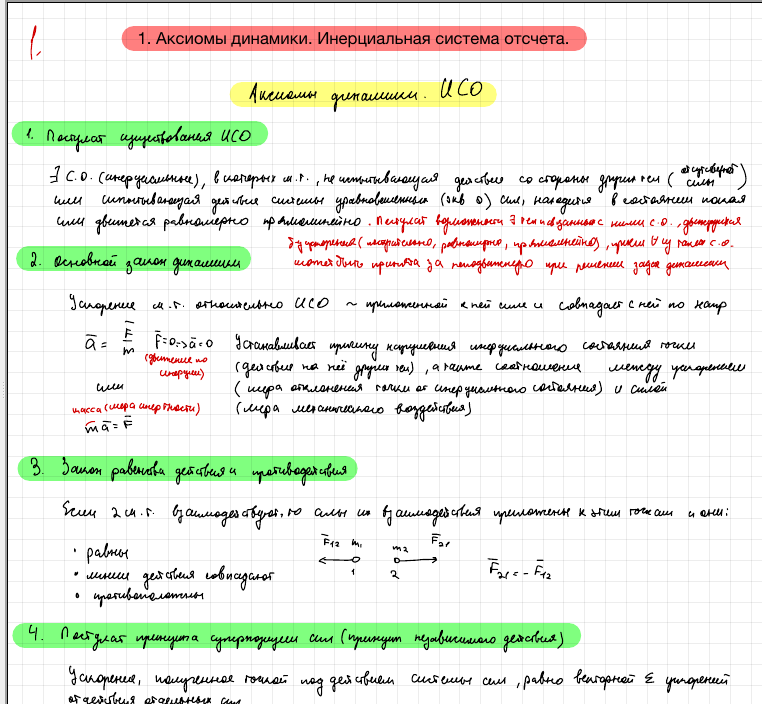 1.
1. Аксиомы динамики. Инерциальная система отсчета.
Аксиомы динамики. ИСО
1. Постулат существования ИСО
∃ С.О. (инерциальные), в которых м.т., не испытывающая действие со стороны других тел (отсутствуют силы)
или испытывающая действие системы уравновешенных (экв 0) сил, находится в состоянии покоя
или движется равномерно прямолинейно. Постулат возможности ∃ тел и связанных с ними С.О., движущихся
без ускорения (поступательно, равномерно, прямолинейно), причем ∀ из таких С.О.
может быть принята за неподвижную при решении задач динамики
2. Основной закон динамики
Ускорение м.т. относительно ИСО ~ приложенной к ней силе и совпадает с ней по напр
a̅ = F̅/m F̅=0 => a̅=0 Устанавливает причину нарушения инерциального состояния точки
(движение по инерции) (действие на неё других тел), а также соотношения между ускорением
или (мера отклонения точки от инерциального состояния) и силой
масса (мера инертности) (мера механического воздействия)
m a̅ = F̅
3. Закон равенства действия и противодействия
Если 2 м.т. взаимодействуют, то силы их взаимодействия приложены к этим точкам и они:
F̅12 m1 m2 F̅21
• равны
1 2 F̅21 = - F̅12
• линии действия совпадают
• противоположны
4. Постулат принципа суперпозиции сил (принцип независимого действия)
Ускорение, полученное точкой под действием системы сил, равно векторной Σ ускорений
от действия отдельных сил